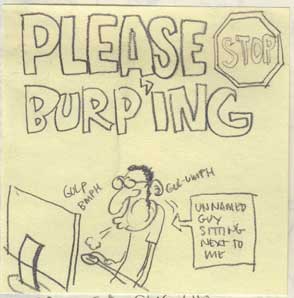 PLEASE STOP
BURPING
GULP
BMPH
GUL-UMPH
UNNAMED
GUY
SITTING
NEXT TO
ME